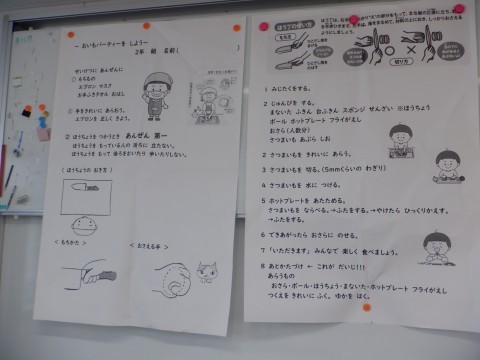 － おいもパーティーを しよう －
2年 組 名前( )
せいけつに あんぜんに
① もちもの
エプロン マスク
お手ふきタオル おはし
② 手をきれいに あらおう。
エプロンを 正しく きよう。
③ ほうちょうを つかうとき あんぜん 第一
ほうちょうを もっている人の 近くに 立たない。
ほうちょうを もって 後ろをむいたり 歩いたりしない。
( ほうちょうの おき方 )
< もちかた >
< おさえる手 >
ほうちょうの使い方
もち方
切り方
1 みじたくをする。
2 じゅんびを する。
まないた ふきん 台ふきん スポンジ せんざい ※ほうちょう
ボール ホットプレート フライがえし
おさら(人数分)
さつまいも あぶら しお
3 さつまいもを きれいに あらう。
3 さつまいもを 切る。(5mmくらいの わぎり)
4 さつまいもを 水に つける。
5 ホットプレートを あたためる。
さつまいもを ならべる。→ふたをする。→やけたら ひっくりかえす。
→ふたをする。
6 できあがったら おさらに のせる。
7 「いただきます」 みんなで 楽しく 食べましょう。
8 あとかたづけ ← これが だいじ!!!
あらうもの
おさら・ボール・ほうちょう・まないた・ホットプレート フライがえし
つくえを きれいに ふく。 ゆかを はく。